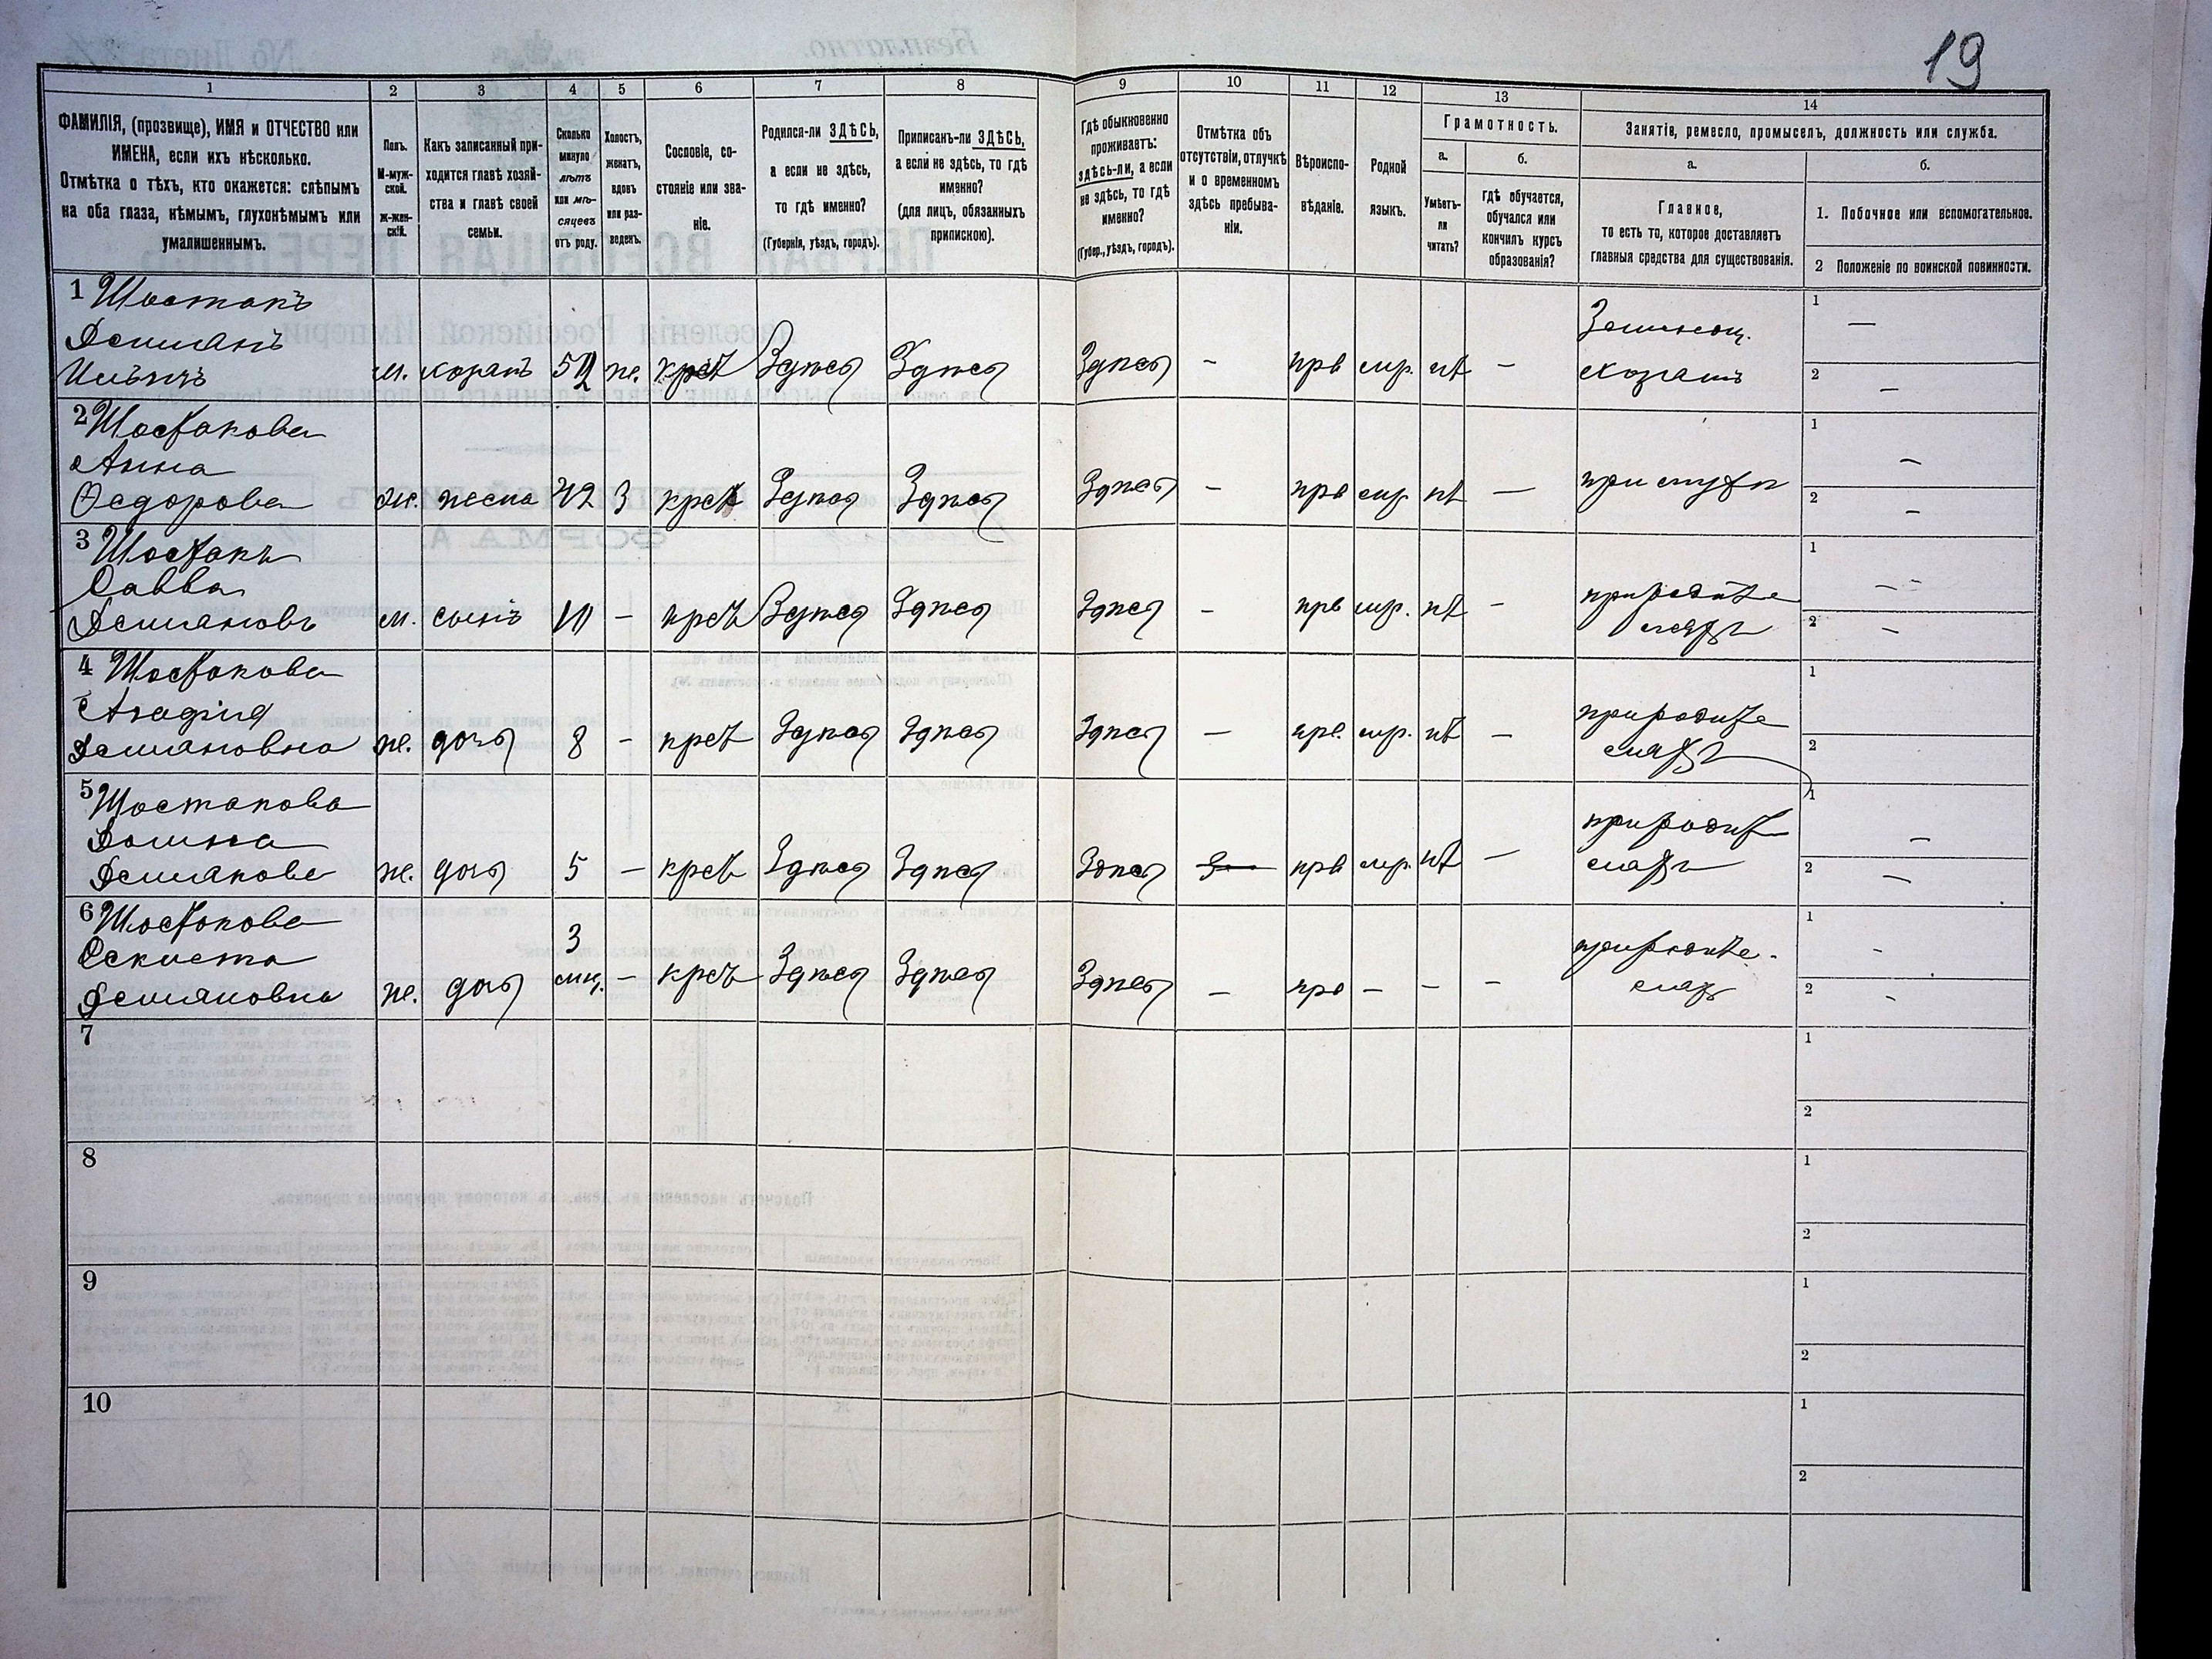 19
1 2 3 4 5 6 7 8 9 10 11 12 13 14
ФАМИЛІЯ, (прозвище), ИМЯ и ОТЧЕСТВО или
ИМЕНА, если ихъ нѣсколько.
Отмѣтка о тѣхъ, кто окажется: слѣпымъ
на оба глаза, нѣмымъ, глухонѣмымъ или
умалишеннымъ.
Полъ.
М-муж-
ской.
ж-жен-
скій.
Какъ записанный при-
ходится главѣ хозяй-
ства и главѣ своей
семьи.
Сколько
минуло
лѣтъ
или мѣ-
сяцевъ
отъ роду.
Холостъ,
женатъ,
вдовъ
или раз-
веденъ.
Сословіе, со-
стояніе или зва-
ніе.
Родился-ли ЗДѢСЬ,
а если не здѣсь,
то гдѣ именно?
(Губернія, уѣздъ, городъ).
Приписанъ-ли ЗДѢСЬ,
а если не здѣсь, то гдѣ
именно?
(для лицъ, обязанныхъ
припискою).
Гдѣ обыкновенно
проживаетъ:
здѣсь-ли, а если
не здѣсь, то гдѣ
именно?
(Губер., уѣздъ, городъ).
Отмѣтка объ
отсутствіи, отлучкѣ
и о временномъ
здѣсь пребыва-
ніи.
Вѣроиспо-
вѣданіе.
Родной
языкъ.
Грамотность.
а.
Умѣетъ-
ли
читать?
б.
гдѣ обучается,
обучался или
кончилъ курсъ
образованія?
Занятіе, ремесло, промыселъ, должность или служба.
а.
Главное,
то есть то, которое доставляетъ
главныя средства для существованія.
б.
1. Побочное или вспомогательное.
2 Положеніе по воинской повинности.
1 Шостакъ
Демианъ
Ильичъ
м. 52 ж. крест Здѣсь Здѣсь Здѣсь - прв мр. нѣт -
1 —
2 —
2 Шостакова
Анна
Федорова
ж. жена 42 З крест Здѣсь Здѣсь Здѣсь - прв мр. нѣт —
1 —
2 —
3 Шостакъ
Савва
Демиановъ
м. сынъ – крест Здѣсь Здѣсь Здѣсь - прв мр. нѣт -
1 —
2 —
4 Шостакова
Демиановна
ж. дочь 8 - крест Здѣсь Здѣсь Здѣсь — прв. мр. нѣт -
1
2
5 Шостакова
Домна
Демианова
ж. дочь 5 – крест Здѣсь Здѣсь Здѣсь прв мр. нѣт —
1 —
2 —
6 Шостакова
Демиановна
ж. дочь 3 мц. - крест Здѣсь Здѣсь Здѣсь – прв – – -
1 -
2 -
7 1
2
8 1
2
9 1
2
10 1
2